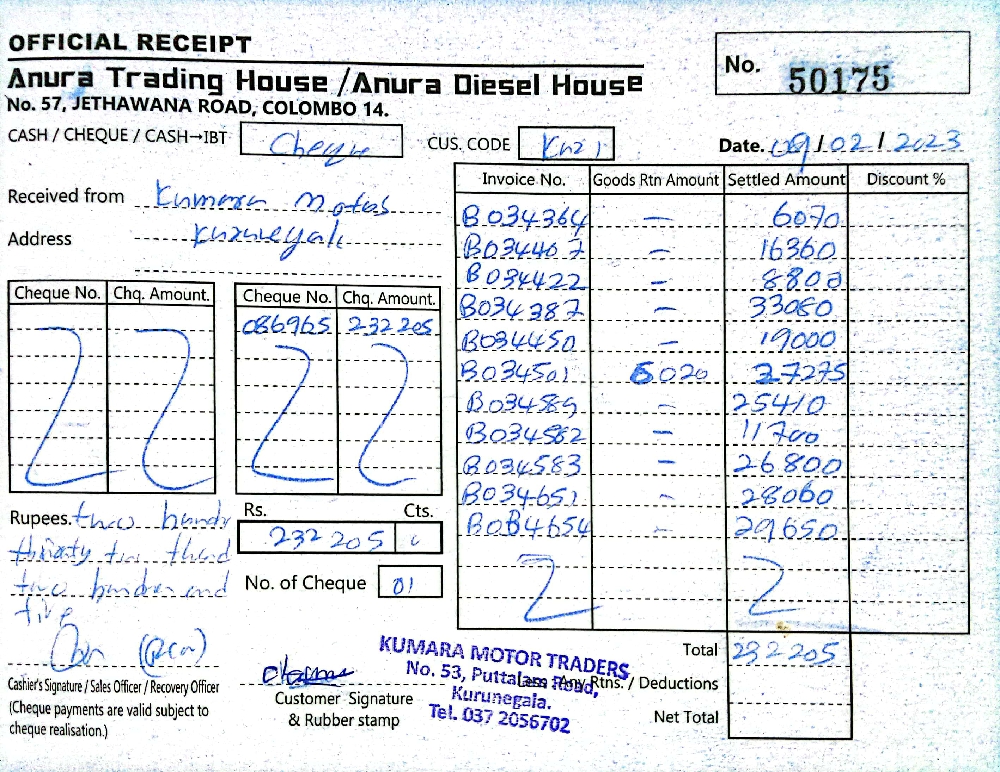 OFFICIAL RECEIPT
Anura Trading House / Anura Diesel House
No. 57, JETHAWANA ROAD, COLOMBO 14.
No. 50175
CASH / CHEQUE / CASH→IBT Cheque
CUS. CODE
Date. 09/02/2023
Received from Kumara Motors
Address
Cheque No. Chq. Amount.
Cheque No. Chq. Amount.
086965 232205
Invoice No. Goods Rtn Amount Settled Amount Discount %
B034364 — 6070
B034407 — 16360
B034422 — 8800
B034387 — 33080
B034450 — 19000
B034501 5020 27275
B034589 — 25410
B034582 — 11700
B034583 — 26800
B034651 — 28060
B034654 — 29650
Rupees. two hundr
thirty two thud
two hundred and
five
Rs. Cts.
232205
No. of Cheque 01
Total 232205
Less: Any Rtns. / Deductions
Net Total
Cashier's Signature / Sales Officer / Recovery Officer
(Cheque payments are valid subject to
cheque realisation.)
Customer Signature
& Rubber stamp
KUMARA MOTOR TRADERS
No. 53, Puttalam Road,
Kurunegala.
Tel. 037 2056702